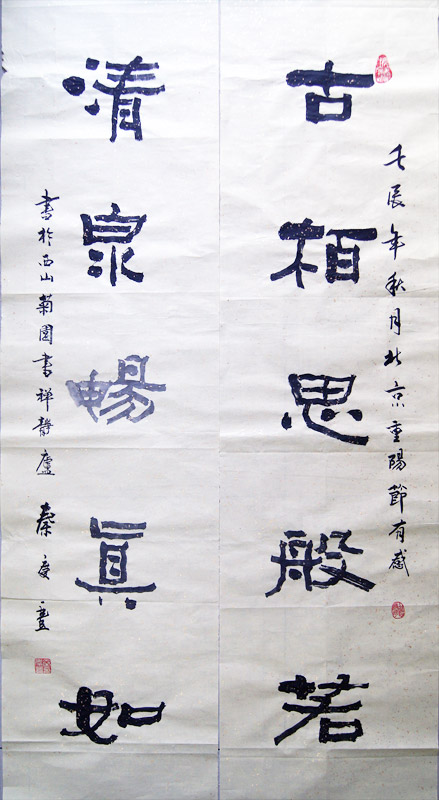 壬辰年秋月北京重陽節有感
古栢思般若
清泉暢真如
書於西山菊園書禅靜廬 秦度